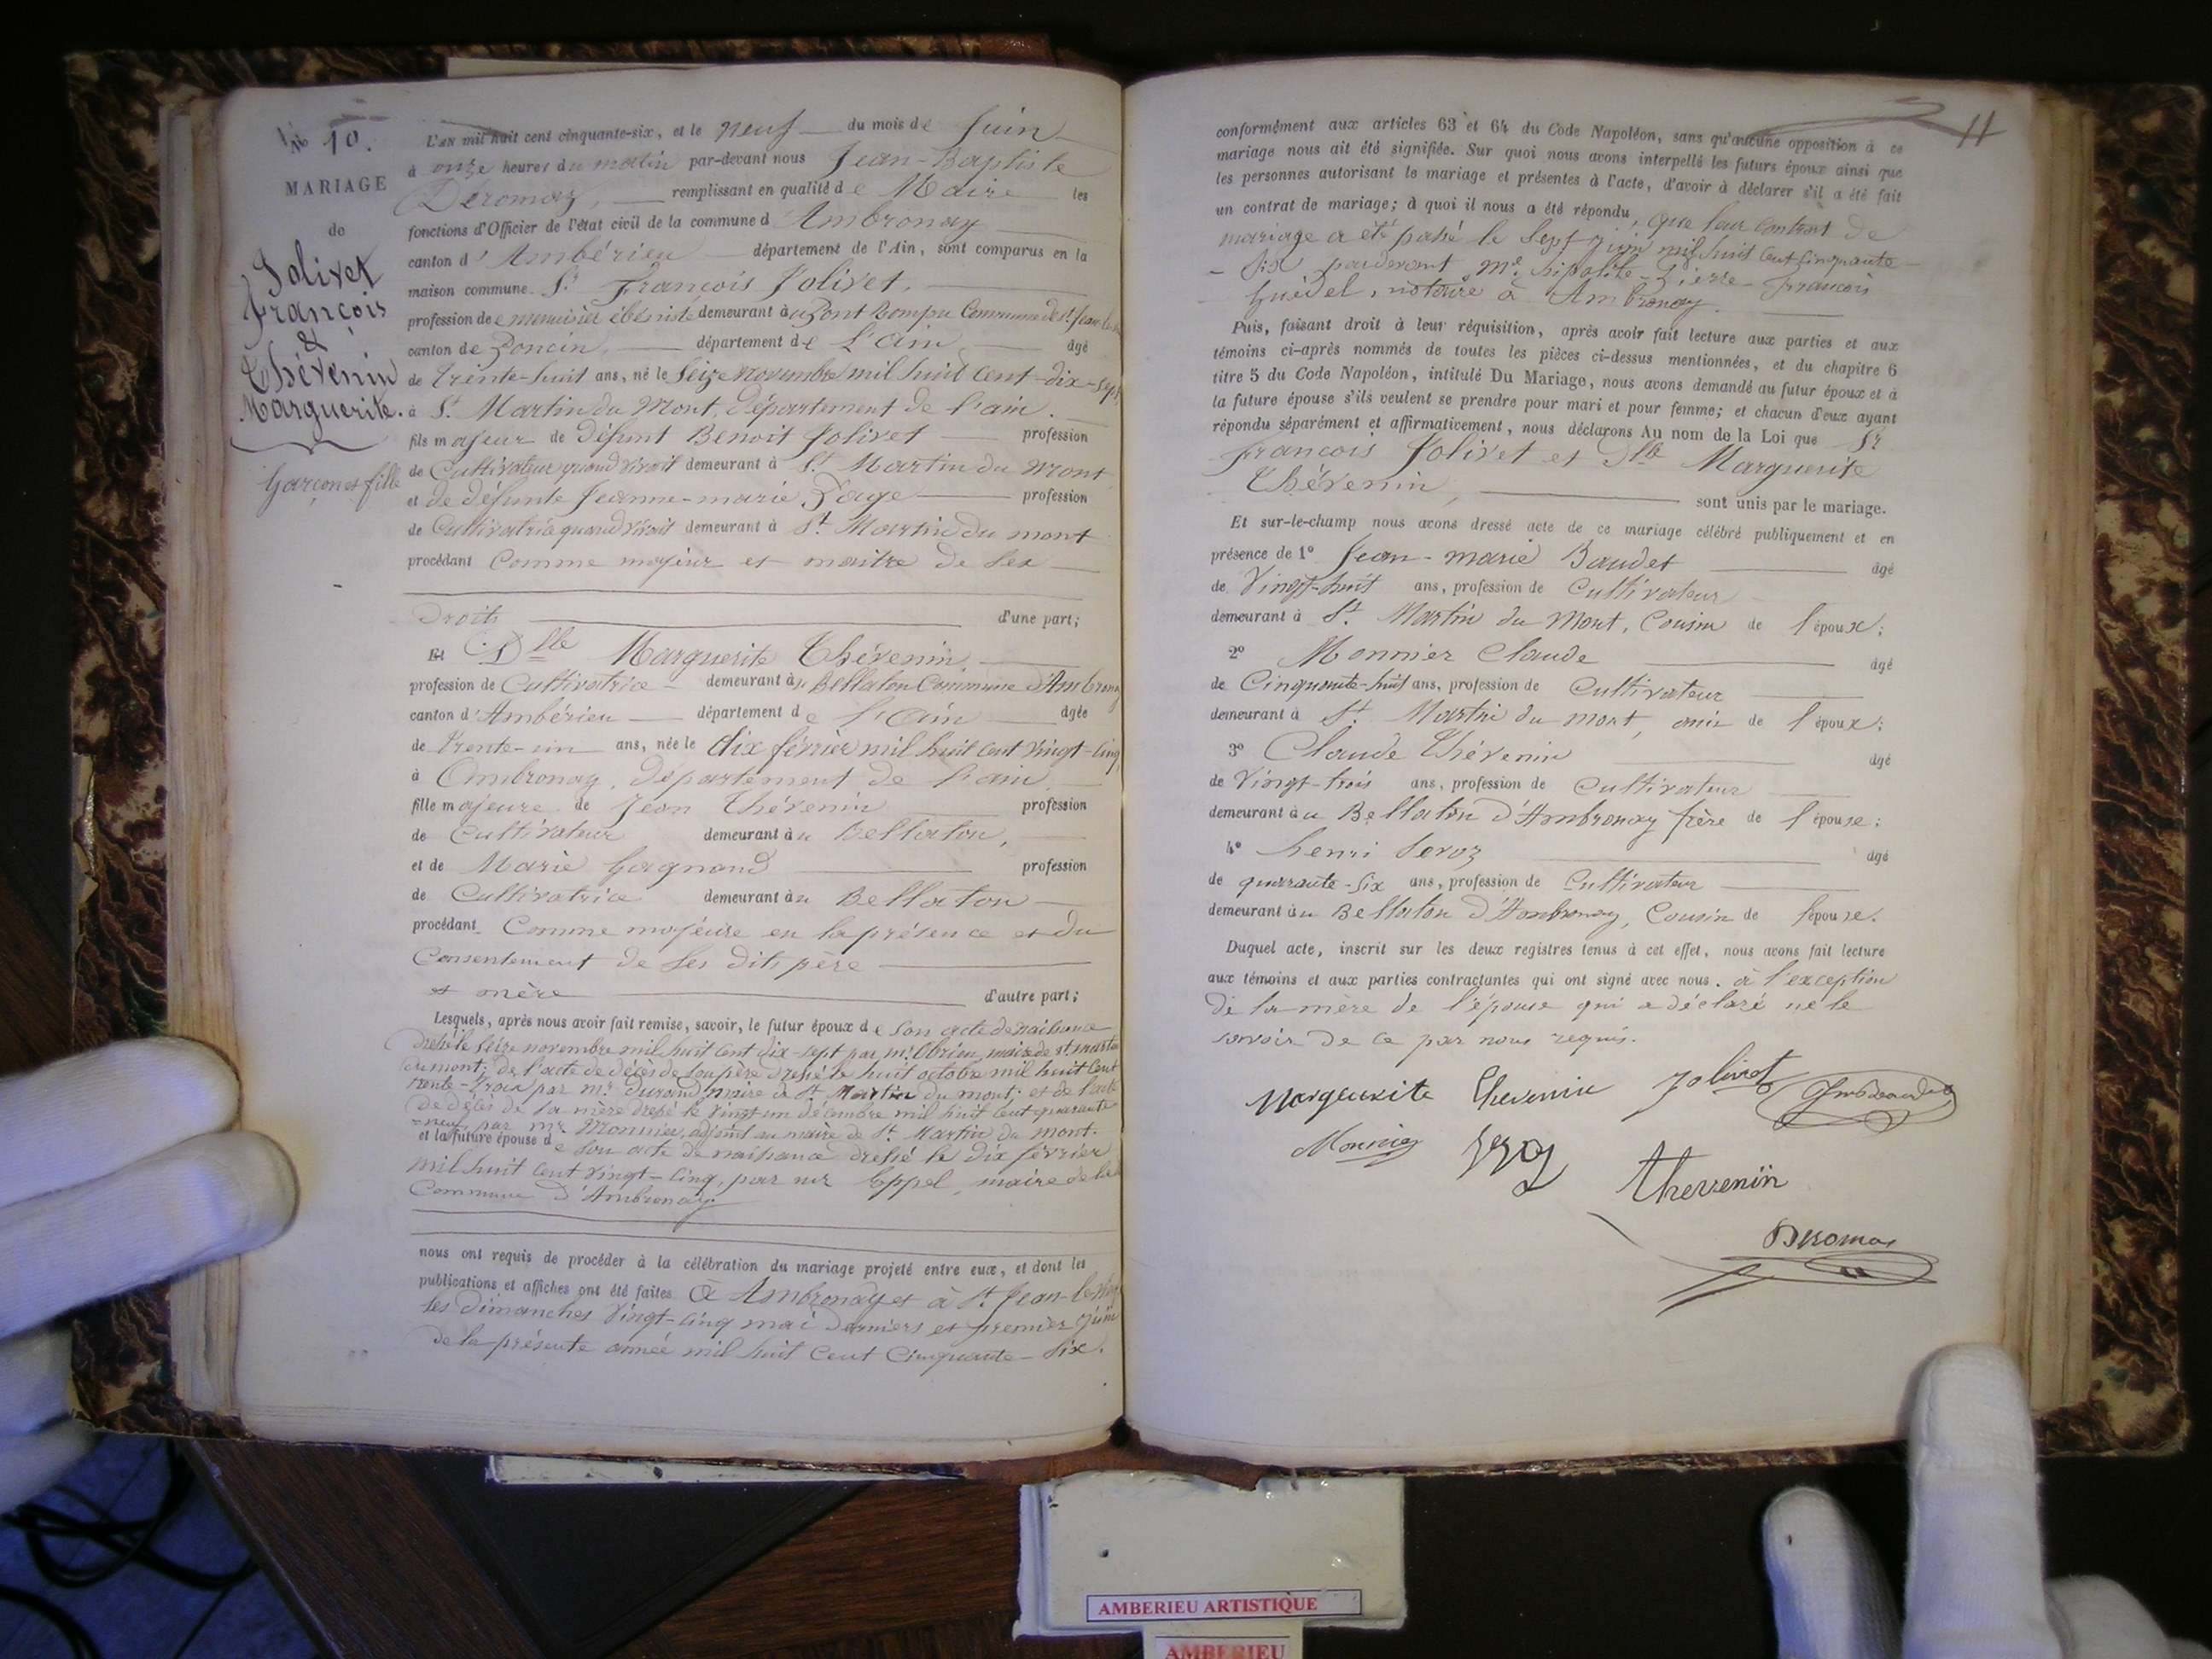 No 10.
MARIAGE
de
Jolivet
François
&
Thévenin
Marguerite.
Garçon et fille
L'an mil huit cent cinquante-six, et le neuf du mois de Juin
à onze heures du matin par-devant nous Jean-Baptiste
Déromaz, remplissant en qualité de Maire les
fonctions d'Officier de l'état civil de la commune d'Ambronay
canton d'Ambérieu département de l'Ain, sont comparus en la
maison commune Sr François Jolivet,
profession de menuisier ébéniste demeurant au Pont Rompu Commune de St Jean le
canton de Poncin, département de L'Ain âgé
de trente-huit ans, né le Seize novembre mil huit cent dix-sept
à St Martin du Mont, département de l'ain.
fils majeur de défunt Benoit Jolivet profession
de Cultivateur quand vivait demeurant à St Martin du Mont
et de défunte Jeanne-marie Page profession
de Cultivatrice quand vivait demeurant à St Martin du mont
procédant Comme majeur et maitre de ses
Droits d'une part;
Et Dlle Marguerite Thévenin,
profession de Cultivatrice demeurant au Bellaton Commune d'Ambronay
canton d'Ambérieu département de l'Ain âgée
de trente-un ans, née le dix février mil huit cent vingt-cinq
à Ambronay, département de l'ain,
fille majeure de Jean Thévenin profession
de Cultivateur demeurant au Bellaton,
et de Marie Gagnand profession
de Cultivatrice demeurant au Bellaton
procédant Comme majeure en la présence et du
Consentement de ses dits père
et mère d'autre part;
Lesquels, après nous avoir fait remise, savoir, le futur époux de Son acte de naissance
dressé le Seize novembre mil huit cent dix-sept par mr maire de st martin
du mont; de l'acte de décès de son père dressé le huit octobre mil huit cent
trente-trois par mr Durand maire de St Martin du mont; et de l'acte
de décès de sa mère dressé le vingt un décembre mil huit cent quarante
neuf par mr Monnier, adjoint au maire de St Martin du mont.
et la future épouse de son acte de naissance dressé le dix février
mil huit cent vingt-cinq, par mr Eppel, maire de la
Commune d'Ambronay.
nous ont requis de procéder à la célébration du mariage projeté entre eux, et dont les
publications et affiches ont été faites à Ambronay et à St Jean-le-
les dimanches vingt-cinq mai derniers et premier Juin
de la présente année mil huit cent cinquante-six.
11
conformément aux articles 63 et 64 du Code Napoléon, sans qu'aucune opposition à ce
mariage nous ait été signifiée. Sur quoi nous avons interpellé les futurs époux ainsi que
les personnes autorisant le mariage et présentes à l'acte, d'avoir à déclarer s'il a été fait
un contrat de mariage; à quoi il nous a été répondu, que leur contrat de
mariage a été passé le Sept juin mil huit cent cinquante
six pardevant Me hipolite-Pierre-François
Guédel, notaire à Ambronay.
Puis, faisant droit à leur réquisition, après avoir fait lecture aux parties et aux
témoins ci-après nommés de toutes les pièces ci-dessus mentionnées, et du chapitre 6
titre 5 du Code Napoléon, intitulé Du Mariage, nous avons demandé au futur époux et à
la future épouse s'ils veulent se prendre pour mari et pour femme; et chacun d'eux ayant
répondu séparément et affirmativement, nous déclarons Au nom de la Loi que Sr
François Jolivet et Dlle Marguerite
Thévenin, sont unis par le mariage.
Et sur-le-champ nous avons dressé acte de ce mariage célébré publiquement et en
présence de 1° Jean-marie Baudet âgé
de Vingt-huit ans, profession de Cultivateur
demeurant à St Martin du Mont, Cousin de l'époux;
2° Monnier Claude âgé
de Cinquante-huit ans, profession de Cultivateur
demeurant à St Martin du mont, ami de l'époux;
3° Claude Thévenin âgé
de Vingt-trois ans, profession de Cultivateur
demeurant au Bellaton d'Ambronay frère de l'épouse;
4° henri Servoz âgé
de quarante-six ans, profession de Cultivateur
demeurant au Bellaton d'Ambronay, Cousin de l'épouse.
Duquel acte, inscrit sur les deux registres tenus à cet effet, nous avons fait lecture
aux témoins et aux parties contractantes qui ont signé avec nous. à l'exception
de la mère de l'épouse qui a déclaré ne le
savoir de ce par nous requis.
Margeurite Thevenin Jolivet
Monnier
thevenin
Deromas
AMBERIEU ARTISTIQUE
AMBERIEU